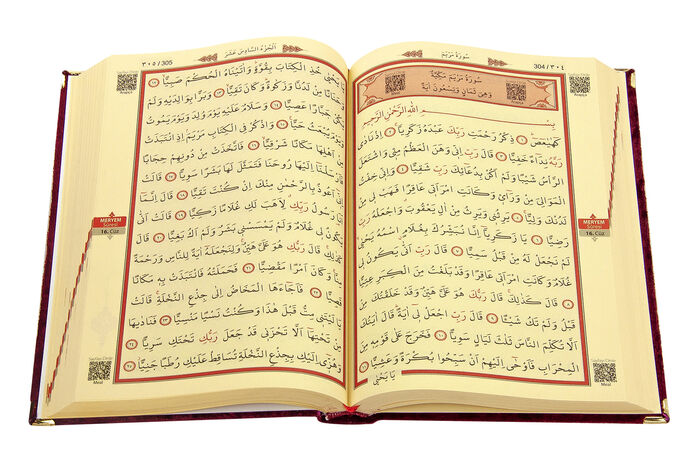 سُورَةُ مَرْيَمَ 304/٣٠٤
سُورَةُ مَرْيَمَ مَكِّيَّةٌ
وَهِىَ ثَمَانٍ وَتِسْعُونَ آيَةً
بِسْمِ اللّٰهِ الرَّحْمٰنِ الرَّحِيمِ
كٓهٰيٰعٓصٓ ﴿١﴾ ذِكْرُ رَحْمَتِ رَبِّكَ عَبْدَهُ زَكَرِيَّا ﴿٢﴾ اِذْ نَادٰى
رَبَّهُ نِدَاءً خَفِيًّا ﴿٣﴾ قَالَ رَبِّ اِنِّى وَهَنَ الْعَظْمُ مِنِّى وَاشْتَعَلَ
الرَّأْسُ شَيْبًا وَلَمْ اَكُنْ بِدُعَائِكَ رَبِّ شَقِيًّا ﴿٤﴾ وَاِنِّى خِفْتُ
الْمَوَالِىَ مِنْ وَرَائِى وَكَانَتِ امْرَاَتِى عَاقِرًا فَهَبْ لِى مِنْ
لَدُنْكَ وَلِيًّا ﴿٥﴾ يَرِثُنِى وَيَرِثُ مِنْ اٰلِ يَعْقُوبَ وَاجْعَلْهُ رَبِّ
رَضِيًّا ﴿٦﴾ يَا زَكَرِيَّا اِنَّا نُبَشِّرُكَ بِغُلَامٍ اسْمُهُ يَحْيٰى
لَمْ نَجْعَلْ لَهُ مِنْ قَبْلُ سَمِيًّا ﴿٧﴾ قَالَ رَبِّ اَنّٰى يَكُونُ لِى
غُلَامٌ وَكَانَتِ امْرَاَتِى عَاقِرًا وَقَدْ بَلَغْتُ مِنَ الْكِبَرِ عِتِيًّا
﴿٨﴾ قَالَ كَذٰلِكَ قَالَ رَبُّكَ هُوَ عَلَىَّ هَيِّنٌ وَقَدْ خَلَقْتُكَ مِنْ
قَبْلُ وَلَمْ تَكُ شَيْئًا ﴿٩﴾ قَالَ رَبِّ اجْعَلْ لِى اٰيَةً قَالَ اٰيَتُكَ
اَلَّا تُكَلِّمَ النَّاسَ ثَلٰثَ لَيَالٍ سَوِيًّا ﴿١٠﴾ فَخَرَجَ عَلٰى قَوْمِهِ مِنَ
الْمِحْرَابِ فَاَوْحٰى اِلَيْهِمْ اَنْ سَبِّحُوا بُكْرَةً وَعَشِيًّا ﴿١١﴾
يَا يَحْيٰى
MERYEM
Sûresi
16. Cüz
Meal
٣٠٥/305 اَلْجُزْءُ السَّادِسَ عَشَرَ
يَا يَحْيٰى خُذِ الْكِتَابَ بِقُوَّةٍ وَاٰتَيْنَاهُ الْحُكْمَ صَبِيًّا ﴿١٢﴾
وَحَنَانًا مِنْ لَدُنَّا وَزَكٰوةً وَكَانَ تَقِيًّا ﴿١٣﴾ وَبَرًّا بِوَالِدَيْهِ وَلَمْ
يَكُنْ جَبَّارًا عَصِيًّا ﴿١٤﴾ وَسَلَامٌ عَلَيْهِ يَوْمَ وُلِدَ وَيَوْمَ يَمُوتُ
وَيَوْمَ يُبْعَثُ حَيًّا ﴿١٥﴾ وَاذْكُرْ فِى الْكِتَابِ مَرْيَمَ اِذِ انْتَبَذَتْ
مِنْ اَهْلِهَا مَكَانًا شَرْقِيًّا ﴿١٦﴾ فَاتَّخَذَتْ مِنْ دُونِهِمْ حِجَابًا
فَاَرْسَلْنَا اِلَيْهَا رُوحَنَا فَتَمَثَّلَ لَهَا بَشَرًا سَوِيًّا ﴿١٧﴾ قَالَتْ
اِنِّى اَعُوذُ بِالرَّحْمٰنِ مِنْكَ اِنْ كُنْتَ تَقِيًّا ﴿١٨﴾ قَالَ اِنَّمَا
اَنَا رَسُولُ رَبِّكِ لِاَهَبَ لَكِ غُلَامًا زَكِيًّا ﴿١٩﴾ قَالَتْ اَنّٰى
يَكُونُ لِى غُلَامٌ وَلَمْ يَمْسَسْنِى بَشَرٌ وَلَمْ اَكُ بَغِيًّا ﴿٢٠﴾ قَالَ
كَذٰلِكِ قَالَ رَبُّكِ هُوَ عَلَىَّ هَيِّنٌ وَلِنَجْعَلَهُ اٰيَةً لِلنَّاسِ وَرَحْمَةً
مِنَّا وَكَانَ اَمْرًا مَقْضِيًّا ﴿٢١﴾ فَحَمَلَتْهُ فَانْتَبَذَتْ بِهِ مَكَانًا
قَصِيًّا ﴿٢٢﴾ فَاَجَاءَهَا الْمَخَاضُ اِلٰى جِذْعِ النَّخْلَةِ قَالَتْ
يَا لَيْتَنِى مِتُّ قَبْلَ هٰذَا وَكُنْتُ نَسْيًا مَنْسِيًّا ﴿٢٣﴾ فَنَادٰيهَا
مِنْ تَحْتِهَا اَلَّا تَحْزَنِى قَدْ جَعَلَ رَبُّكِ تَحْتَكِ سَرِيًّا ﴿٢٤﴾
وَهُزِّى اِلَيْكِ بِجِذْعِ النَّخْلَةِ تُسَاقِطْ عَلَيْكِ رُطَبًا جَنِيًّا ﴿٢٥﴾
MERYEM
Sûresi
16. Cüz
Meal